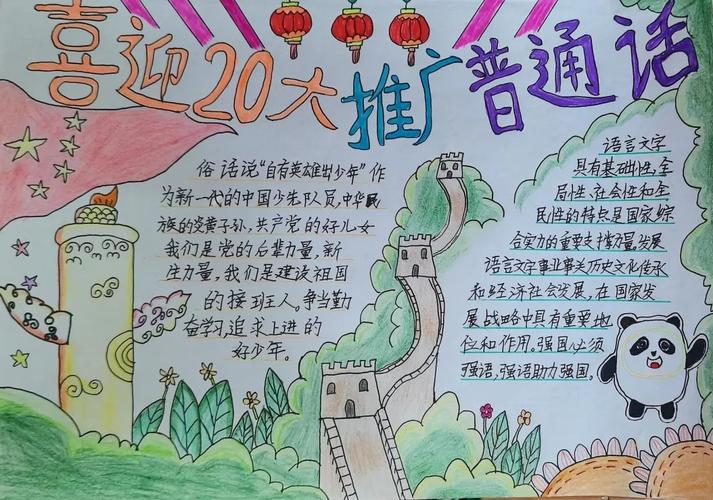 喜迎20大推广普通话
俗话说“自有英雄出少年”作
为新一代的中国少先队员,中华民
族的炎黄子孙,共产党的好儿女
我们是党的后辈力量,新
生力量,我们是建设祖国
的接班人。争当勤
奋学习,追求上进的
好少年。
语言文字
具有基础性,全
局性、社会性和全
民性的特点是国家综
合实力的重要支撑力量,发展
语言文字事业事关历史文化传承
和经济社会发展,在国家发
展战略中具有重要地
位和作用。强国必须
强语,强语助力强国。